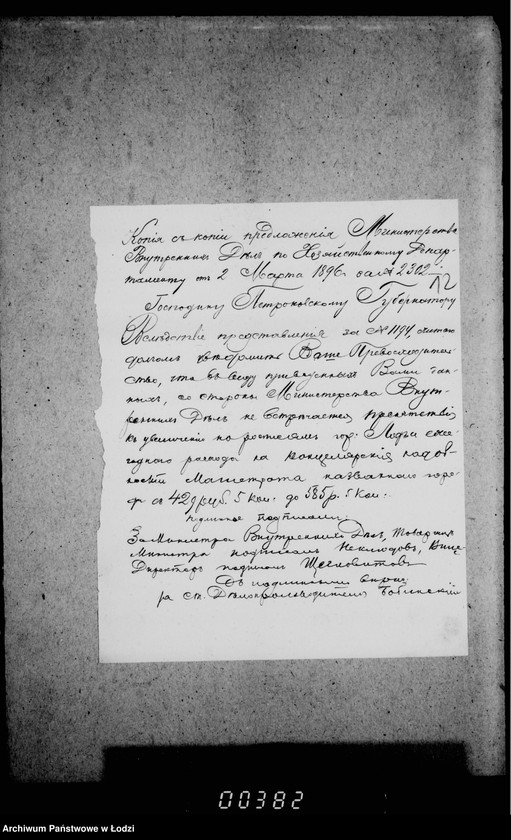 Копія съ копіи предложенія Министерства
Внутреннихъ Дѣлъ по Хозяйственному Депар-
таменту отъ 2 Марта 1896г. за № 2302.
12
Господину Петроковскому Губернатору
Вслѣдствіе представленія за № 1194, считаю
долгомъ увѣдомить Ваше Превосходитель-
ство, что въ виду приведенныхъ Вами дан-
ныхъ, со стороны Министерства Внут-
реннихъ Дѣлъ не встрѣчается препятствій
къ увеличенію по росписямъ гор. Лодзи еже-
годнаго расхода на канцелярскія надоб-
ности Магистрата названнаго горо-
да съ 429 руб. 5 коп. до 585 р. 5 коп.
подлинное подписали:
За Министра Внутреннихъ Дѣлъ, Товарищъ
Министра подписалъ Неклюдовъ, Вице
Директоръ подписалъ Щегловитовъ
Съ подлиннымъ вѣрно:
за ст. Дѣлопроизводителя
00382
Archiwum Państwowe w Łodzi